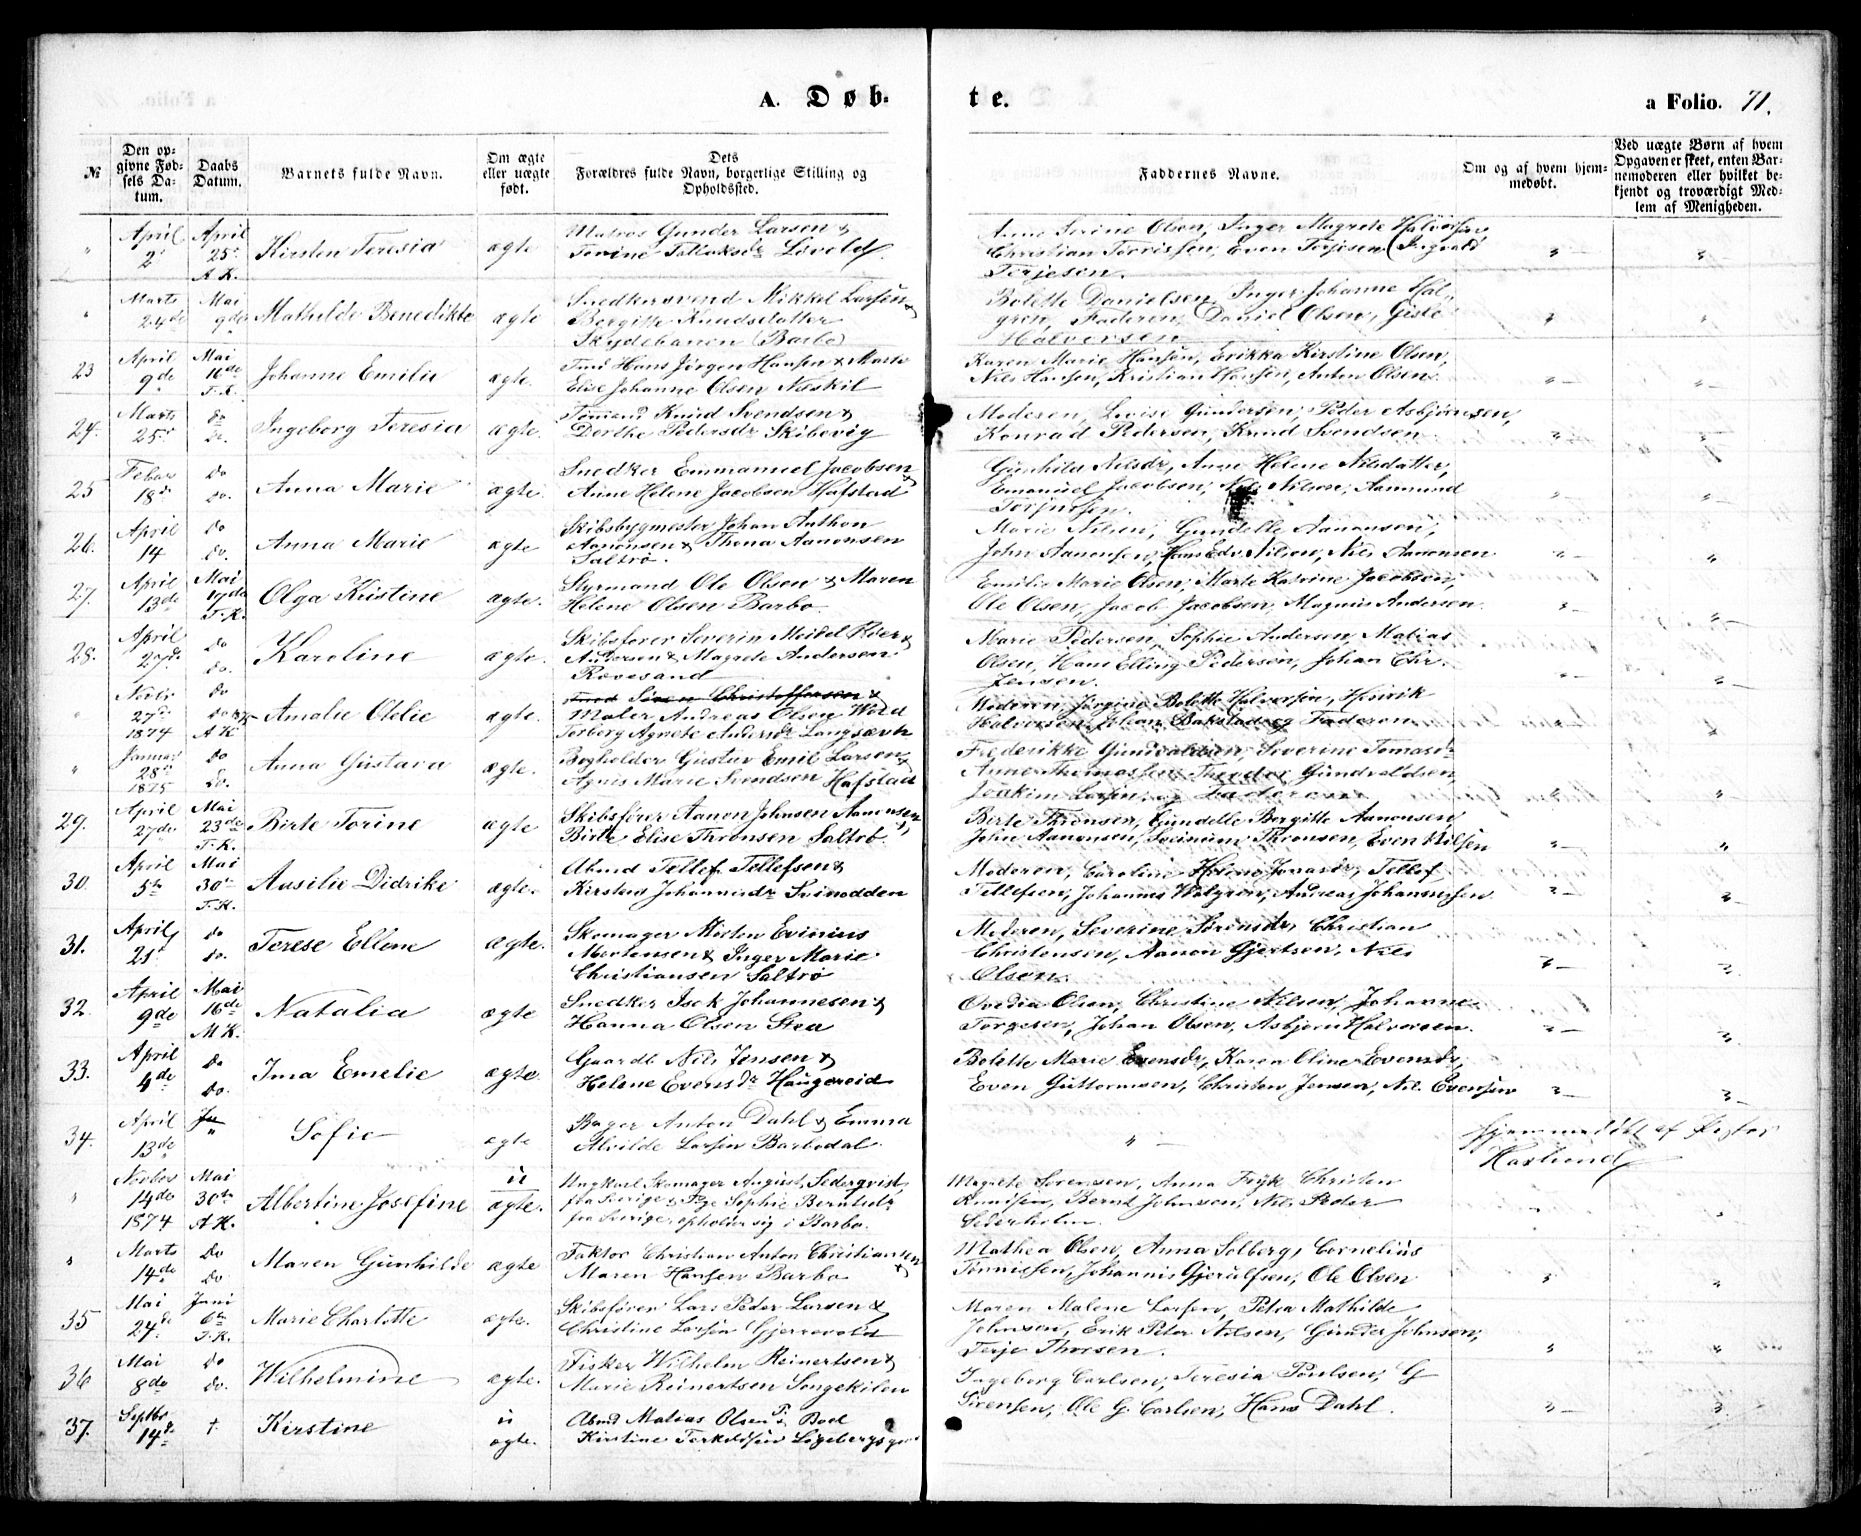 A. Døb-
te.
a Folio. 71.
№
Den opgivne Fødsels Datum.
Daabs Datum.
Barnets fulde Navn.
Om ægte eller uægte født.
Dets Forældres fulde Navn, borgerlige Stilling og Opholdssted.
Faddernes Navne.
Om og af hvem hjemmedøbt.
Ved uægte Børn af hvem Opgaven er skeet, enten Barnemoderen eller hvilket bekjendt og troværdigt Medlem af Menigheden.
" April 2 April 25 A.K. Kirsten Teresia ægte Matros Gunder Larsen &
Torine Tallaksdr Løvold
Anne Serine Olsen, Inger Magrete Halvorsen
Christian Tønnissen, Even Terjesen, Ingvald
Terjesen.
" Marts 24de Mai 9de Mathilde Benedikte ægte Snedkersvend Mikkel Larsen &
Bergitte Knudsdatter
Skydebanen (Barbo)
Bolette Danielsen, Inger Johanne Hal-
gren, Faderen, Daniel Olsen, Gisle
Halvorsen
23 April 9de Mai 16de T.K. Johanne Emilie ægte. Tmd Hans Jørgen Hansen & Marte
Elise Johanne Olsen Neskil
Karen Marie Hansen, Erikka Kirstine Olsen,
Nils Hansen, Kristian Hansen, Anton Olsen.
24. Marts 25 do do. Ingeborg Teresia ægte. Tømmd Knud Svendsen &
Dorthe Pedersdr Skibevig
Moderen, Lovise Gundersen, Peder Asbjørnsen,
Konrad Pedersen, Knud Svendsen
25 Febar 18 do do. Anna Marie ægte. Snedker Emmanuel Jacobsen &
Anne Helene Jacobsen Hafstad
Gunhild Nilsdr, Anne Helene Nilsdatter,
Emanuel Jacobsen, Nils Nilsen, Aamund
26. April 14 do do. Anna Marie ægte Skibsbygmester Johan Anthon
Aanonsen & Thona Aanonsen
Saltrø.
Marie Nilsen, Gundelle Aanonsen,
John Aanonsen, Hans Edv. Nilsen, Nils Aanonsen
27. April 13de Mai 17de F.K. Olga Kristine ægte. Styrmand Ole Olsen & Maren
Helene Olsen Barbo.
Emilie Marie Olsen, Marte Katrine Jacobsen,
Ole Olsen, Jacob Jacobsen, Magnus Andersen
28. April 27de do do. Karoline ægte. Skibsfører Severin Meidel Riber
Andersen & Magrete Andersen
Revesand
Marie Pedersen, Sophie Andersen, Matias
Olsen, Hans Elling Pedersen, Johan Chr.
Jensen.
" Novbr 27de 1874 do do A K Amalie Otelie ægte. Tmd Sven Christoffersen &
Maler Andreas Olsen Wold
Torberg Agnete Andersdr Langsæveh
Moderen, Jørgine Bolette Halvorsen, Henrik
Halvorsen, Johan Bakstad og Faderen
" Januar 28 1875 do do. Anna Gustava ægte. Bogholder Gustav Emil Larsen &
Agnis Marie Svendsen Hafstad
Frederikke Gundvaldsen, Severine Tomasdr
Anne Thomassen, Theodor Gundvaldsen,
Joakim Larsen, og Faderen
29. April 27de Mai 23de T.K. Birte Torine ægte Skibsfører Aanon Johnsen Aanonsen
Birtte Elise Thronsen Saltrø.
Birte Thronsen, Gundelle Bergitte Aanonsen
John Aanonsen, Theonsen, Even Nilsen
30. April 5te Mai 30te T.K. Ausilie Didrike ægte. Abmd Tellef Tellefsen &
Kirsten Johannisdr Svinodden
Moderen, Caroline Helene Jonasdr, Tellef
Tellefsen, Johannes Walgren, Andreas Johannesen
31. April 21 do do. Terese Ellene ægte. Skomager Morten Evinius
Mortensen & Inger Marie
Christiansen Saltrø
Moderen, Severine Sørensdr, Christian
Christensen, Aanon Gjertsen, Nils
Olsen.
32. April 9de Mai 16de M.K. Natalia ægte Snedker Isak Johannesen &
Hanna Olsen Stea
Ovedia Olsen, Christine Nilsen, Johanne
Torgesen, Johan Olsen, Asbjørn Halvorsen.
33. April 4de Do Do. Ina Emelie ægte. Gaardb Nils Jensen &
Helene Evensdr Haugereid
Bolette Marie Evensdr, Karen Oline Evensdr,
Even Guttormsen, Christen Jensen, Nils Evensen
34. April 13de " Sofie ægte Bager Anton Dahl & Emma
Alvilde Larsen Barbodal.
Hjemmedøbt af Pastor
Haslund
" Novber 14de 1874 Mai 30te A.K. Albertine Josefine u ægte. Ungkarl Skomager August Sederqvist
fra Sverige & Pige Sophie Berntsdr
fra Sverige, opholder sig i Barbo.
Magrete Sørensen, Anna Frijk, Christen
Knudsen, Bernt Johnsen, Nils Peder
Sederholm.
" Marts 14de Do Do Maren Gunhilde ægte Faktor Christian Anton Christiansen
Maren Hansen Barbo &
Mathea Olsen, Anna Solberg, Cornelius
Tønnissen, Johannis Gjerulfsen, Ole Olsen
35 Mai 24de Juni 6te T.K. Marie Charlotte ægte. Skibsfører Lars Peder Larsen &
Christine Larsen Gjerrevold
Maren Malene Larsen, Petra Mathilde
Johnsen, Erik Peter Nilsen, Gunder Johnsen,
Terje Thorsen.
36 Mai 8de Do Do. Wilhelmine ægte. Fisker Wilhelm Reinertsen &
Marie Reinertsen Songekilen
Ingeborg Carlsen, Teresia Poulsen, G
Sørensen, Ole G. Carlsen, Hans Dahl.
37. Septbr 14de †. Kirstine u ægte. Abmd Matias Olsen & P. Boel
Kirstine Torkildsen